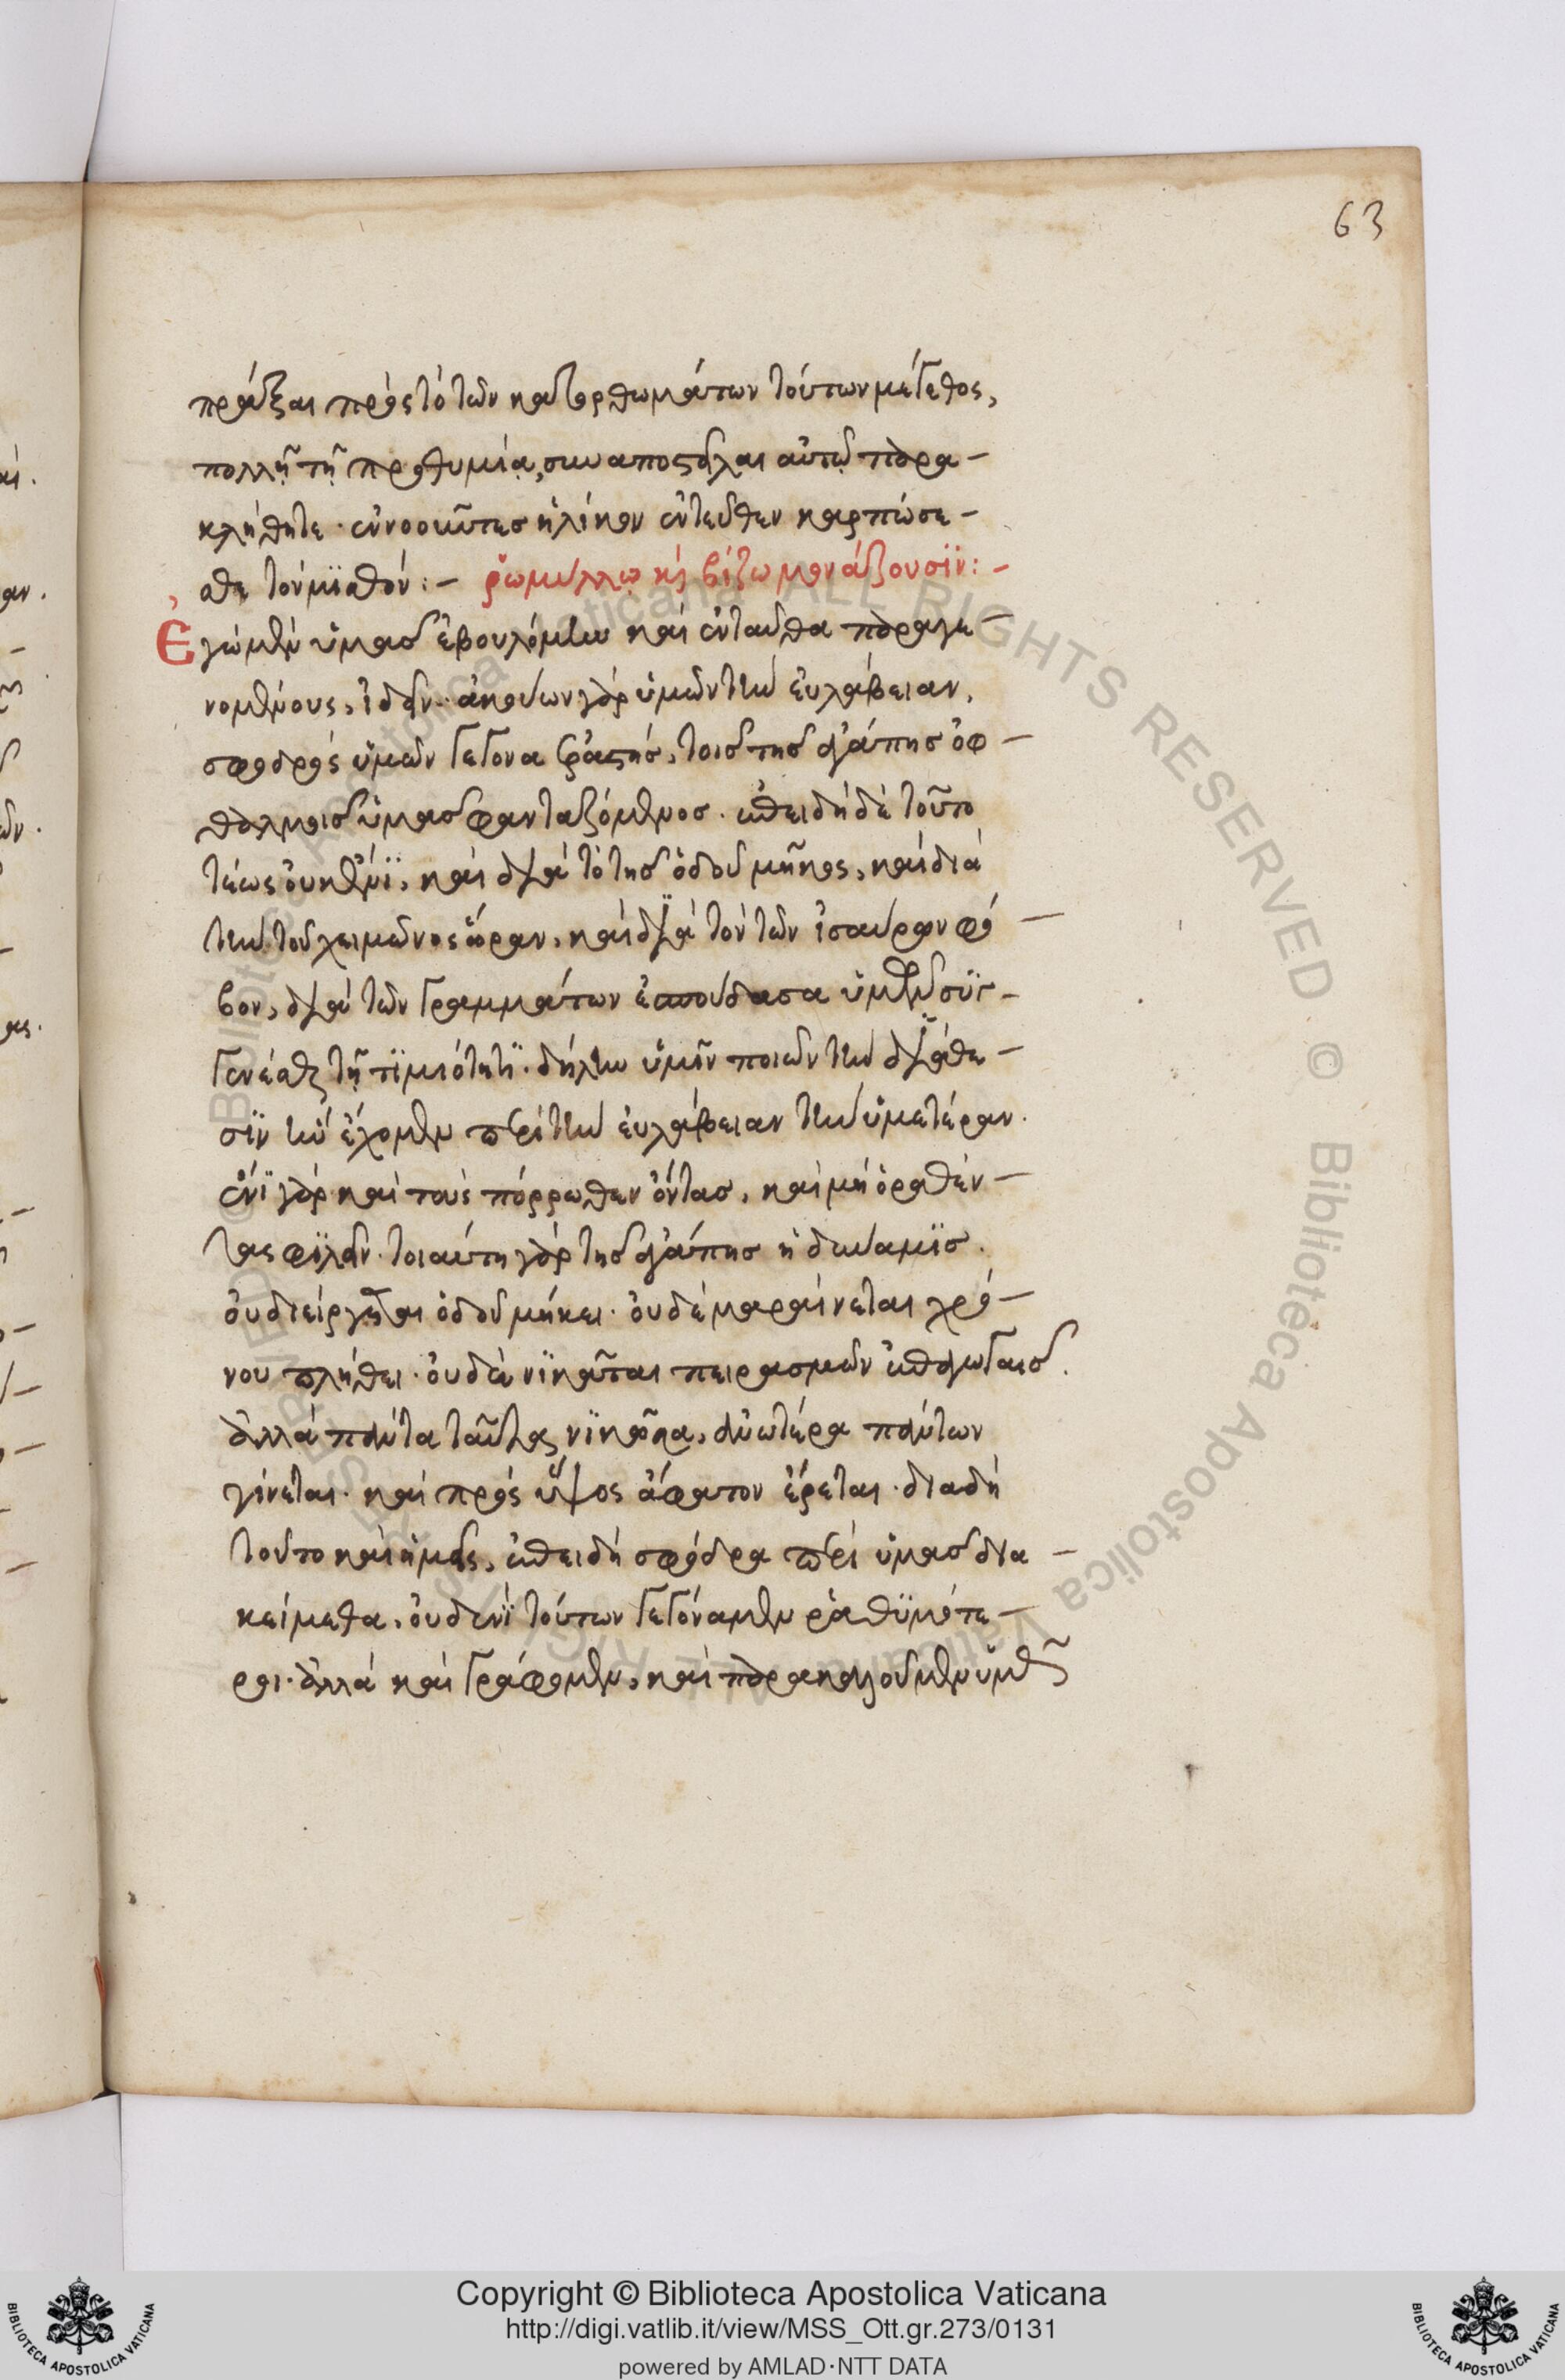 63
πράξαι πρὸς τὸ τῶν κατορθωμάτων τούτων μέγεθος,
πολλῇ τῇ προθυμίᾳ, συναποστεῖλαι αὐτῷ παρα-
κλήθητε · ἐννοοῦντες ἡλίκον ἐντεῦθεν καρπώσε-
σθε τὸν μϊσθόν :- ῥωμύλλῳ κ(αὶ) βίζω μονάζουσϊν :-
Ἐγὼ μὲν ὑμᾶς ἐβουλόμην καὶ ἐνταῦθα παραγε-
νομένους, ἰδεῖν · ἀκούων γὰρ ὑμῶν τὴν ἐυλάβειαν,
σφοδρὸς ὑμῶν γέγονα ἐραστής, τοῖς τῆς ἀγάπης ὀφ-
θαλμοῖς ὑμᾶς φανταζόμενος · ἐπειδὴ δὲ τοῦτο
τέως οὐκ ἔνϊ, καὶ διὰ τὸ τῆς ὁδοῦ μῆκος, καὶ διὰ
τὴν τοῦ χειμῶνος ὥραν, καὶ διὰ τὸν τῶν ἰσαύρων φό-
βον, διὰ τῶν γραμμάτων ἐσπούδασα ὑμῶν συϊγ-
γενέσθαι τῇ τϊμιότητϊ · δήλην ὑμῖν ποιῶν τὴν διάθε-
σϊν ἣν ἔχομεν περὶ τὴν ἐυλάβειαν τὴν ὑμετέραν ·
ἔνϊ γὰρ καὶ τοὺς πόρρωθεν ὄντας, καὶ μὴ ὁραθέν-
τας φϊλεῖν · τοιαύτη γὰρ τῆς ἀγάπης ἡ δύναμϊς ·
οὐ διείργεται ὁδοῦ μήκει · οὐδὲ μαραίνεται χρό-
νου πλήθει · οὐδὲ νϊκᾶται πειρασμῶν ἐπαγωγαῖς ·
ἀλλὰ πάντα ταῦτα νϊκῶσα, ἀνωτέρα πάντων
γίνεται · καὶ πρὸς ὕψος ἄφατον ἔρεται · διαδὴ
τοῦτο καὶ ἡμεῖς, ἐπειδὴ σφόδρα περὶ ὑμᾶς δια-
κείμεθα, οὐδενϊ τούτων γεγόναμεν ῥαθϋμότε-
ροι · ἀλλὰ καὶ γράφομεν, καὶ παρακαλοῦμεν ὑμῶν
Copyright © Biblioteca Apostolica Vaticana
http://digi.vatlib.it/view/MSS_Ott.gr.273/0131
powered by AMLAD·NTT DATA